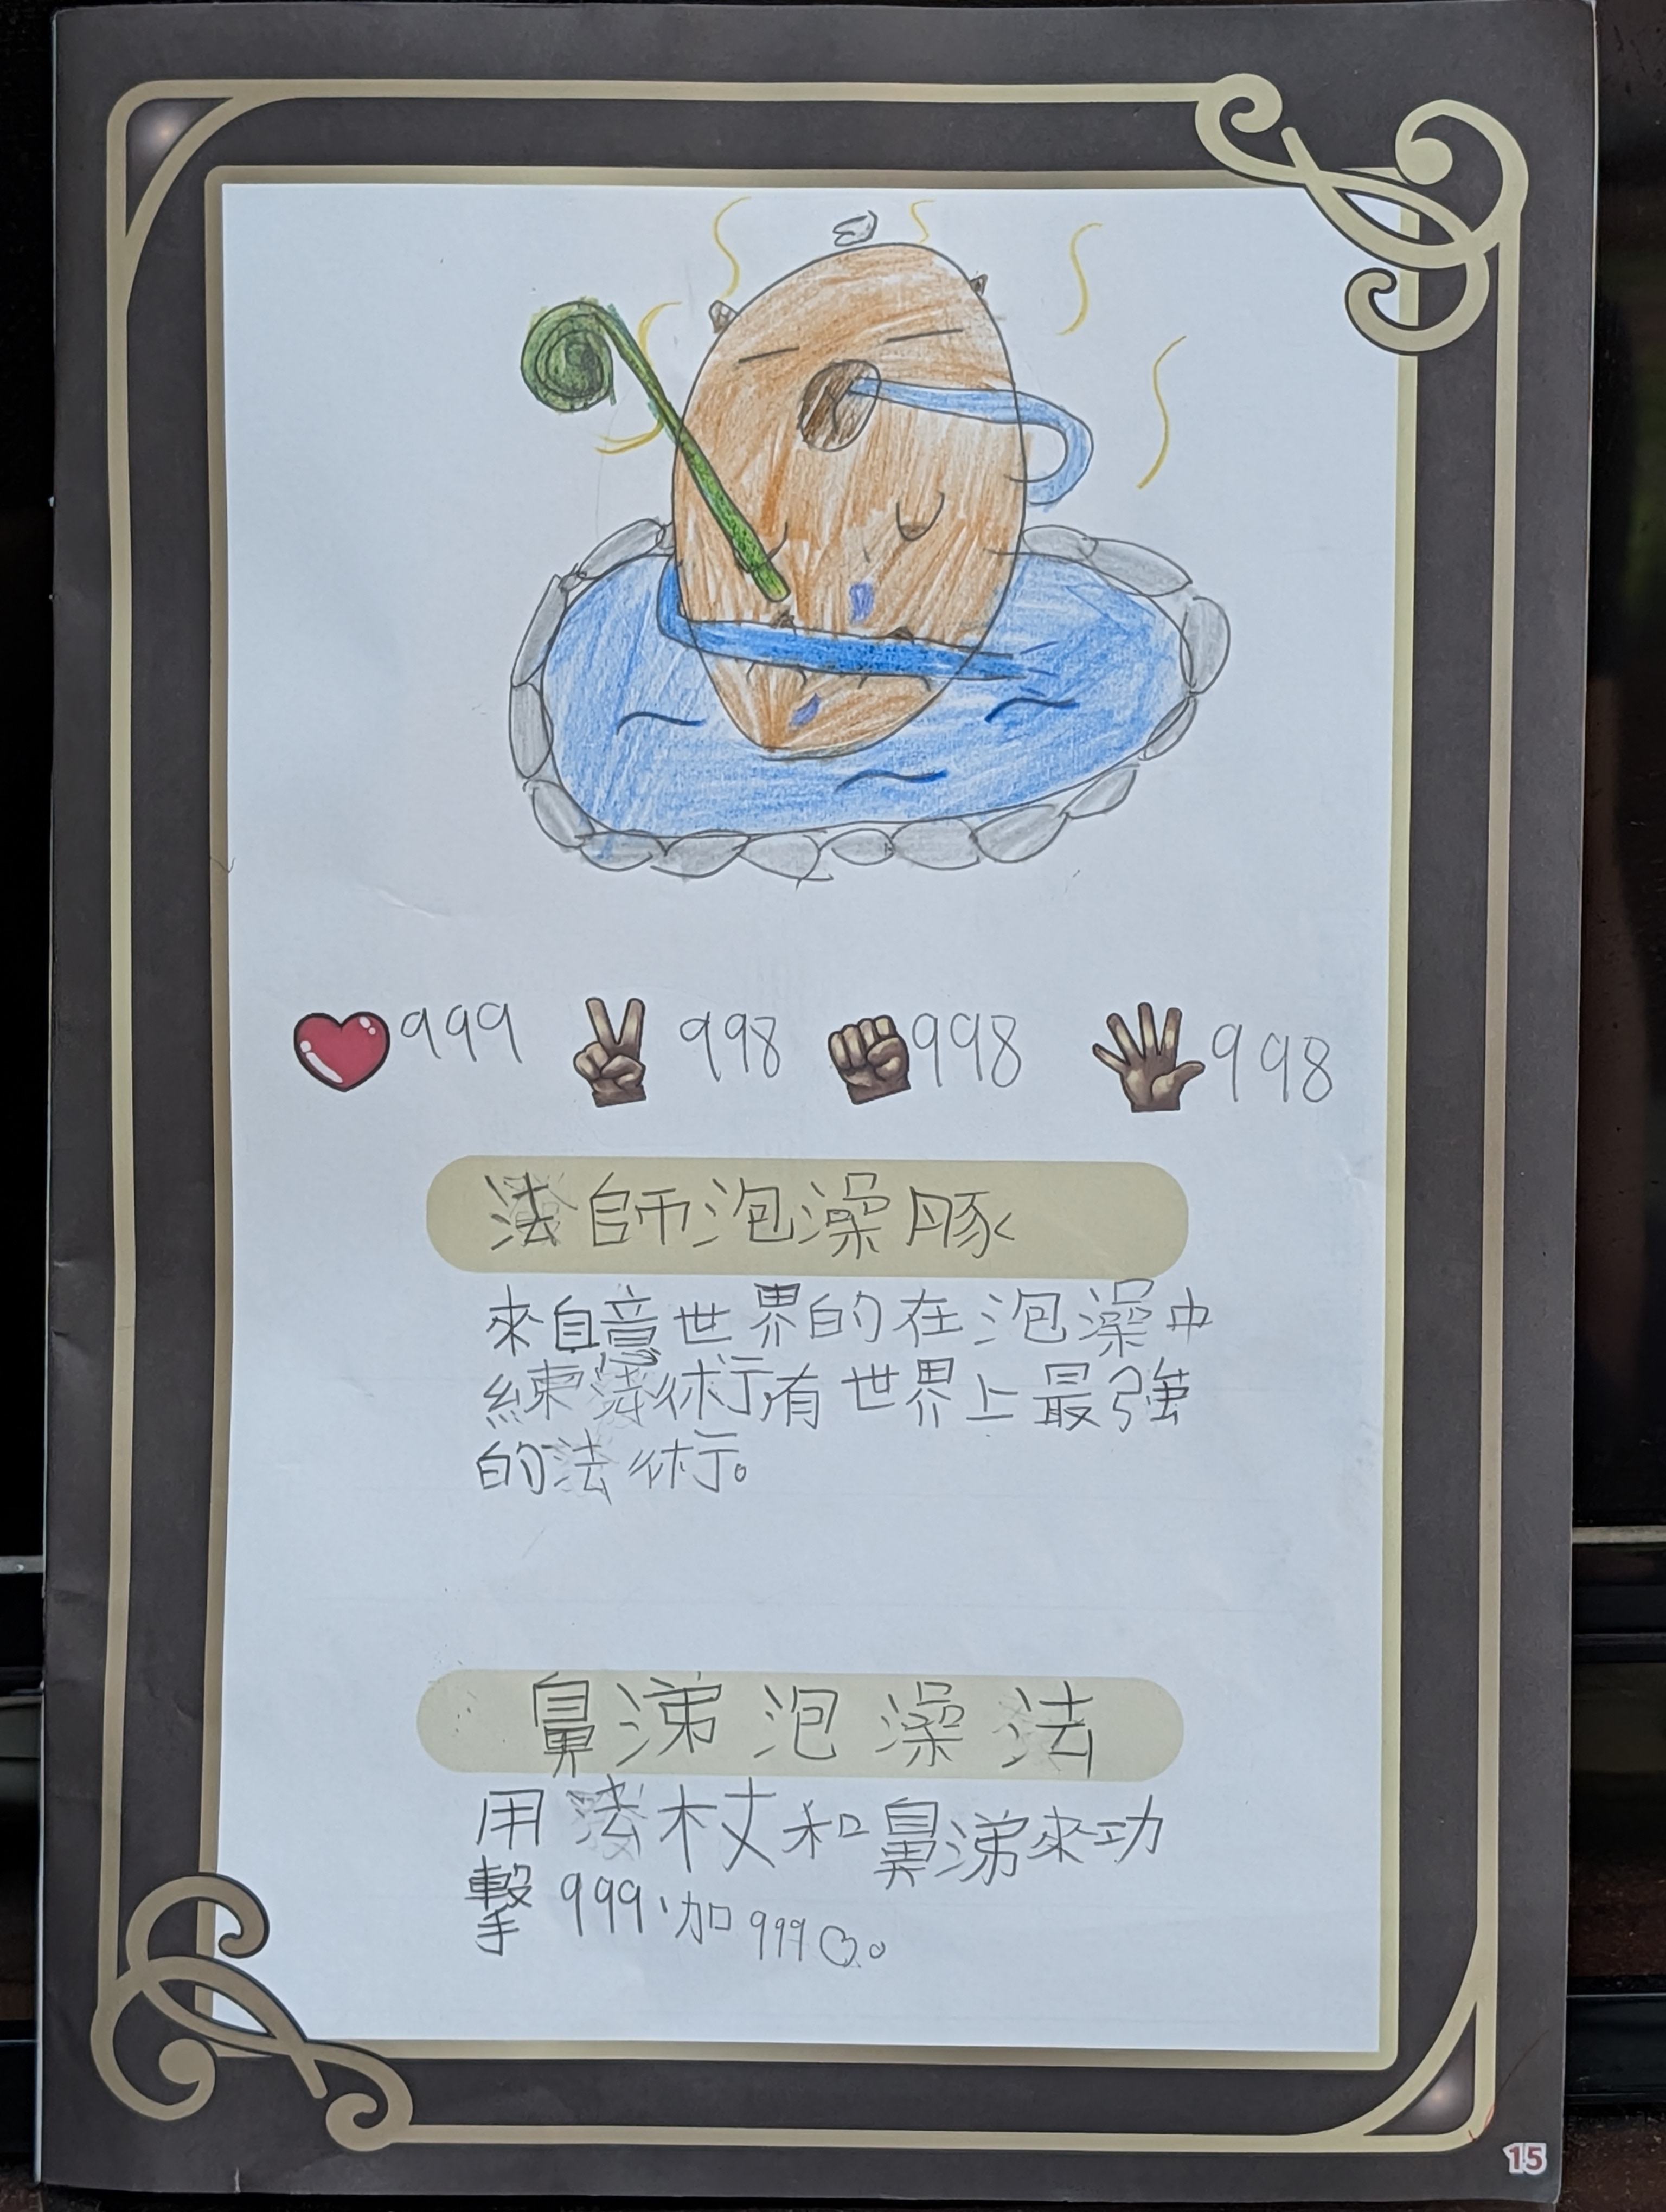 999 998 998 998
法師泡澡豚
來自意世界的在泡澡中
練法術有世界上最強
的法術。
鼻涕泡澡法
用法杖和鼻涕來功
擊999、加999♡。
15